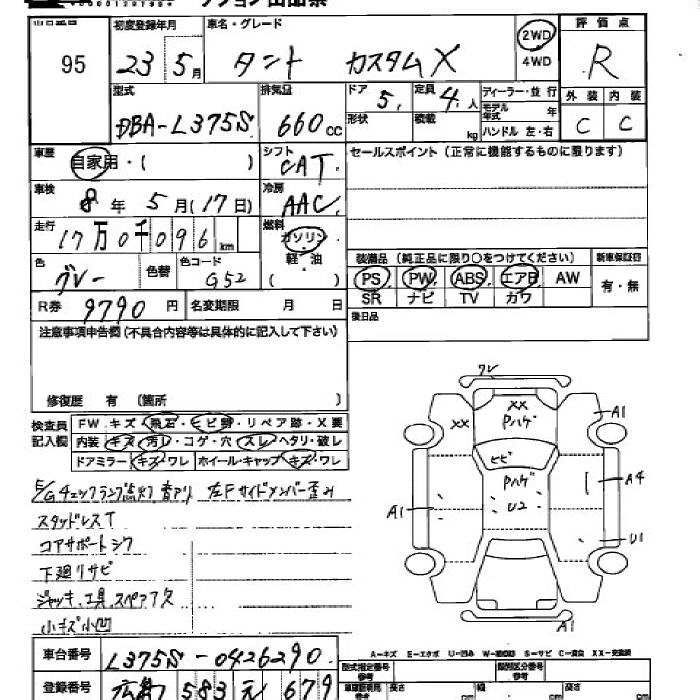 95
初度登録年月 車名・グレード
23 5月 タント カスタムX
2WD
4WD
評価点
R
型式 排気量
DBA-L375S 660cc
ドア 定員 ディーラー・並行
5 4人
モデル年式 年
形状 積載 kg ハンドル 左・右
外装 内装
C C
車歴 自家用・( )
シフト CAT
セールスポイント(正常に機能するものに限ります)
車検 8年5月(17日)
冷房 AAC
走行 17万0千096km
燃料 ガソリン・軽・油
( )
色 グレー 色替 色コード G52
装備品(純正品に限り○をつけてください) 新車保証書
PS PW ABS エアB AW 有・無
SR ナビ TV カワ
R券 9790円 名変期限 月 日
後日品
注意事項申告欄(不具合内容等は具体的に記入して下さい)
修復歴 有 (箇所 )
検査員記入欄
FW キズ・飛石・ヒビ・リペア跡・X要
内装 キズ・汚レ・コゲ・穴・スレ・ヘタリ・破レ
ドアミラー キズ・ワレ ホイール・キャップ キズ・ワレ
E/Gチェックランプ点灯 音アリ 左Fサイドメンバー歪み
スタッドレスT
コアサポートシワ
下廻リサビ
ジャッキ、工具、スペア欠
小キズ小凹
ワレ
XX
XX
Pハゲ
A1
ヒビ
Pハゲ
A4
U2
A1
U1
A1
A-キズ E-エクボ U-凹み W-波凹み S-サビ C-腐食 XX-交換済
車台番号 L375S-0426290
型式指定番号 類別区分番号
登録番号 広島 583 え 679
長さ cm 幅 cm 高さ cm